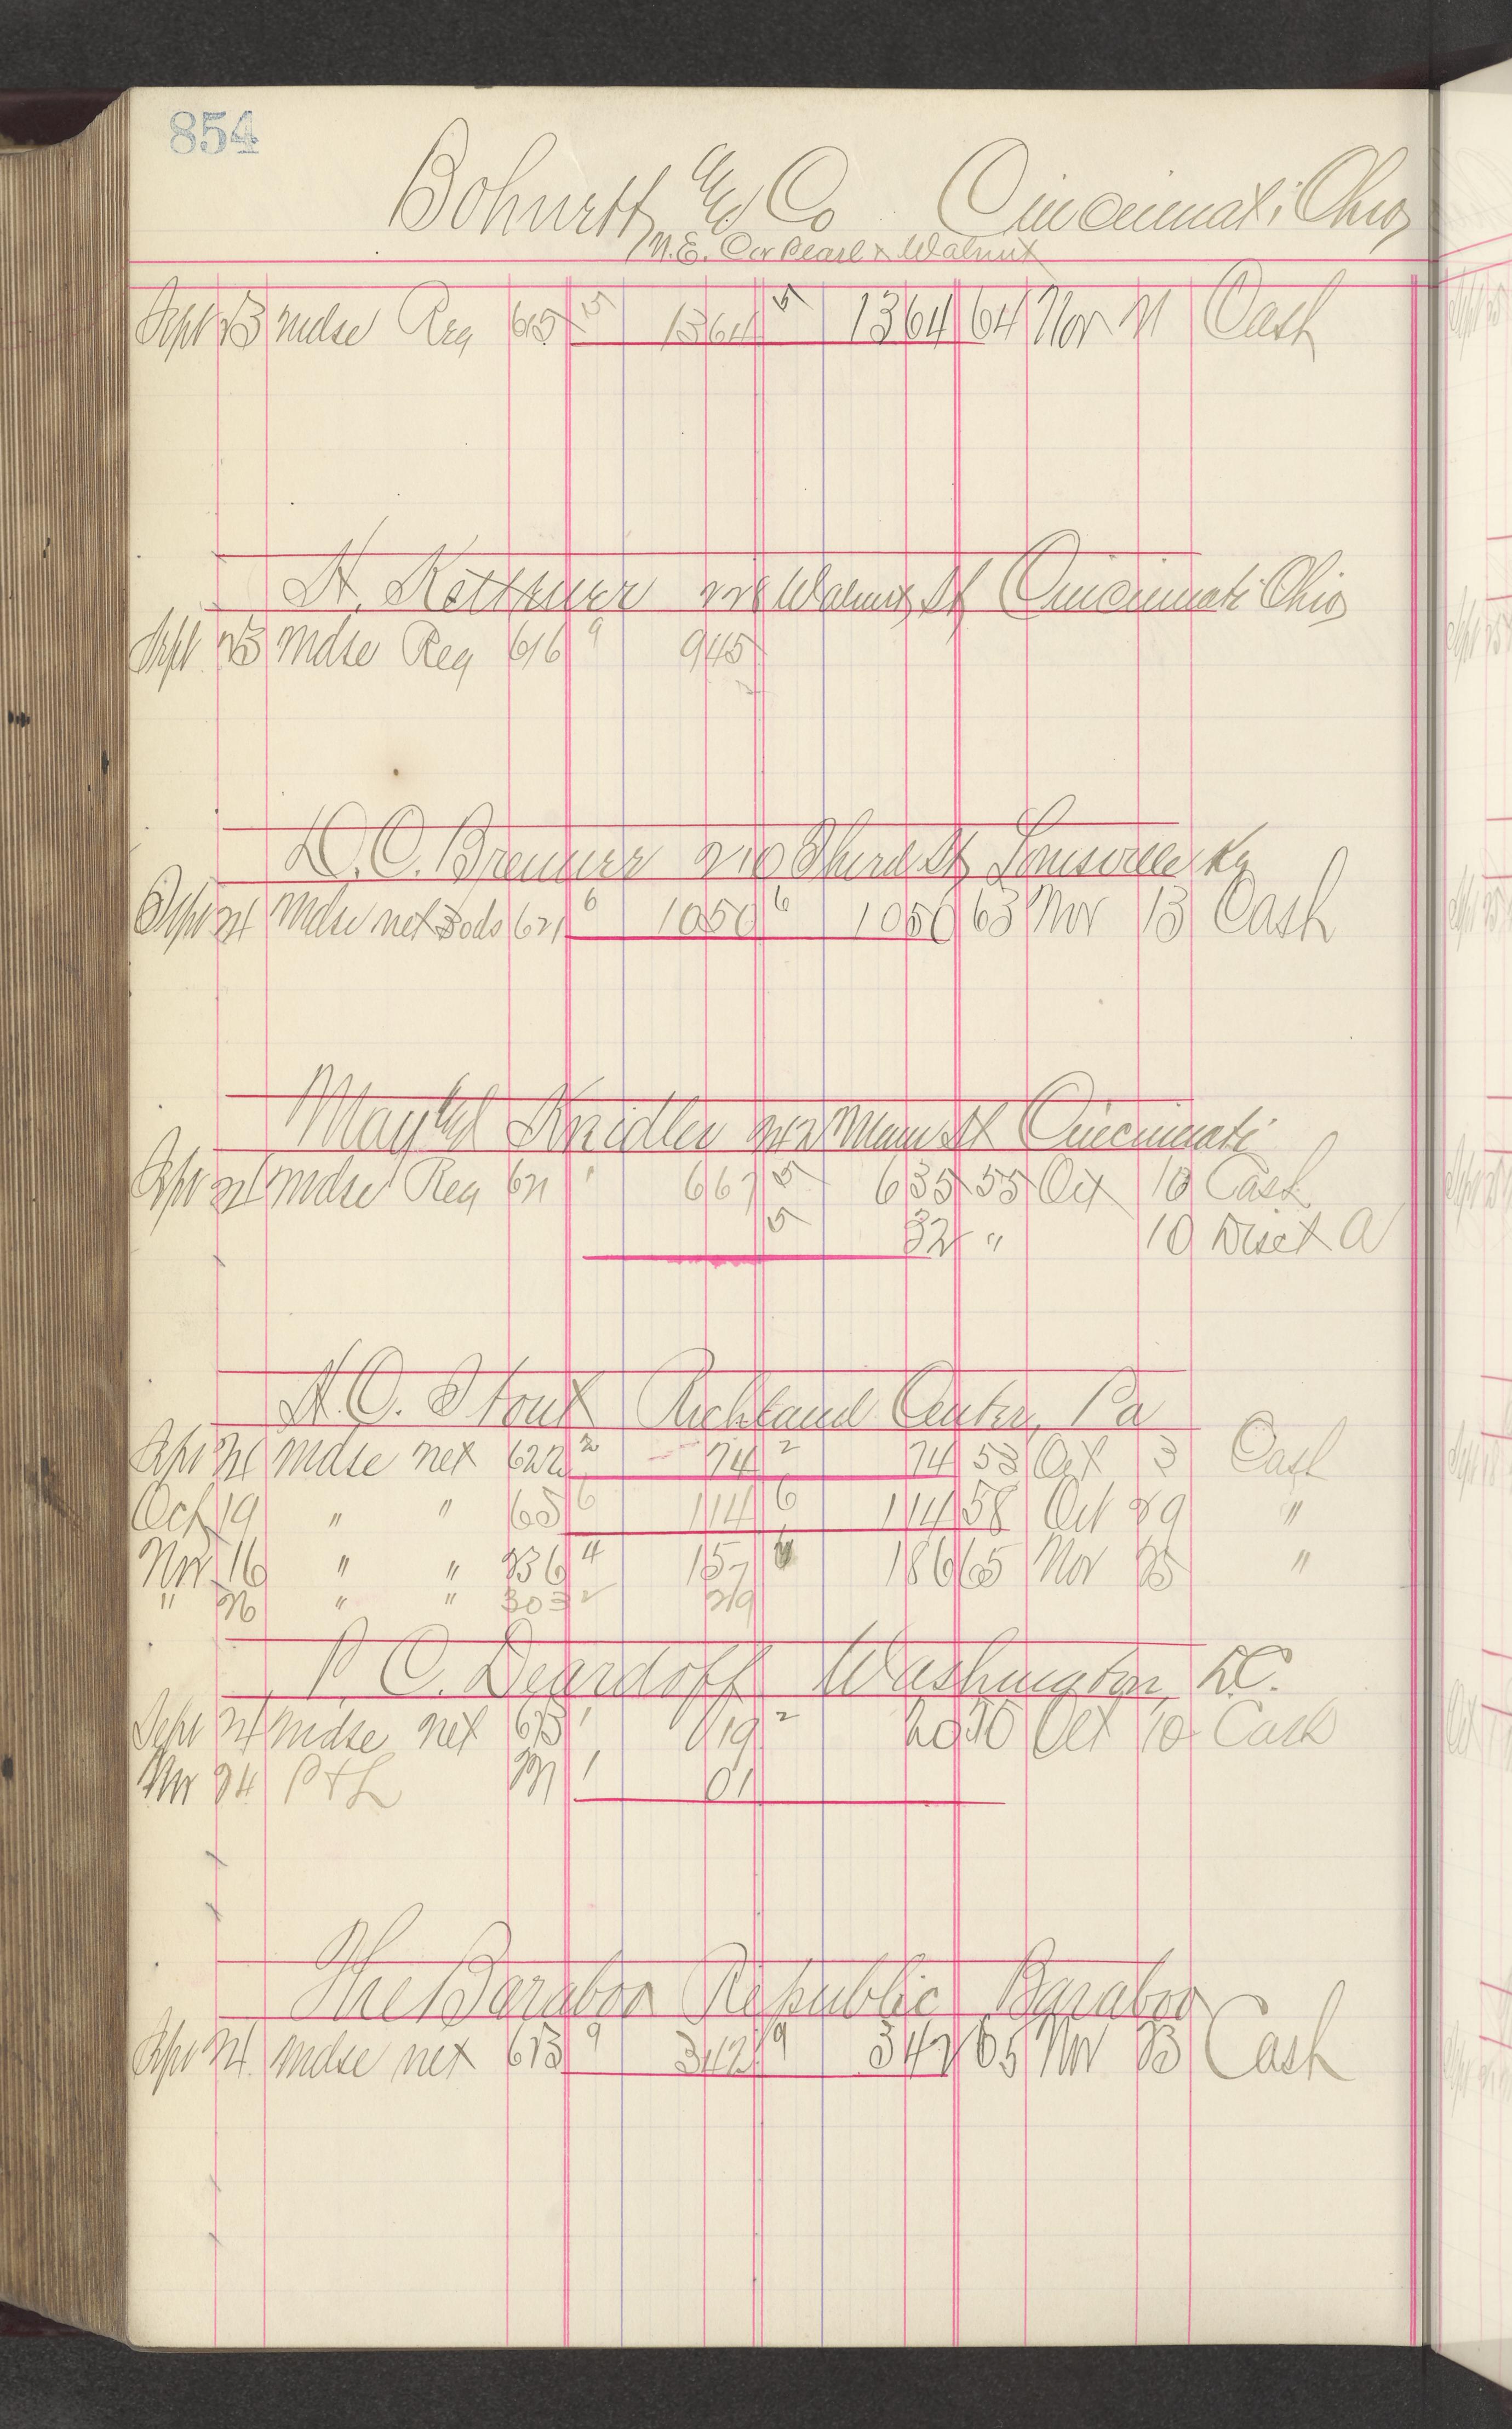 854
Bohnert & Co Cincinnati Ohio
N.E. Cor Pearl & Walnut
Sept 23 Mdse Reg 615 5 1364 5 1364 64 Nov 21 Cash
H. Kettener 228 Walnut St Cincinnati Ohio
Sept 23 Mdse Reg 616 9 945
D. C. Brenner 210 Third St Louisville Ky
Sept 24 Mdse net 30ds 621 6 1050 6 1050 63 Nov 13 Cash
May & Kreidler 242 Main St Cincinnati
Sept 24 Mdse Reg 621 1 667 5 635 55 Oct 10 Cash
5 32 " 10 Disct A
H. O. Stout Richland Center, Pa
Sept 24 Mdse net 622 2 74 2 74 53 Oct 3 Cash
Oct 19 " " 65 6 114 6 114 58 Oct 29 "
Nov 16 " " 236 4 157 186 65 Nov 25 "
" 26 " " 303 2 29
P. C. Deardoff Washington, D.C.
Sept 24 Mdse net 623 1 019 2 20 Oct 10 Cash
Nov 24 P & L 1 01
The Baraboo Republic Baraboo
Sept 24 Mdse net 623 9 342 9 342 65 Nov 23 Cash